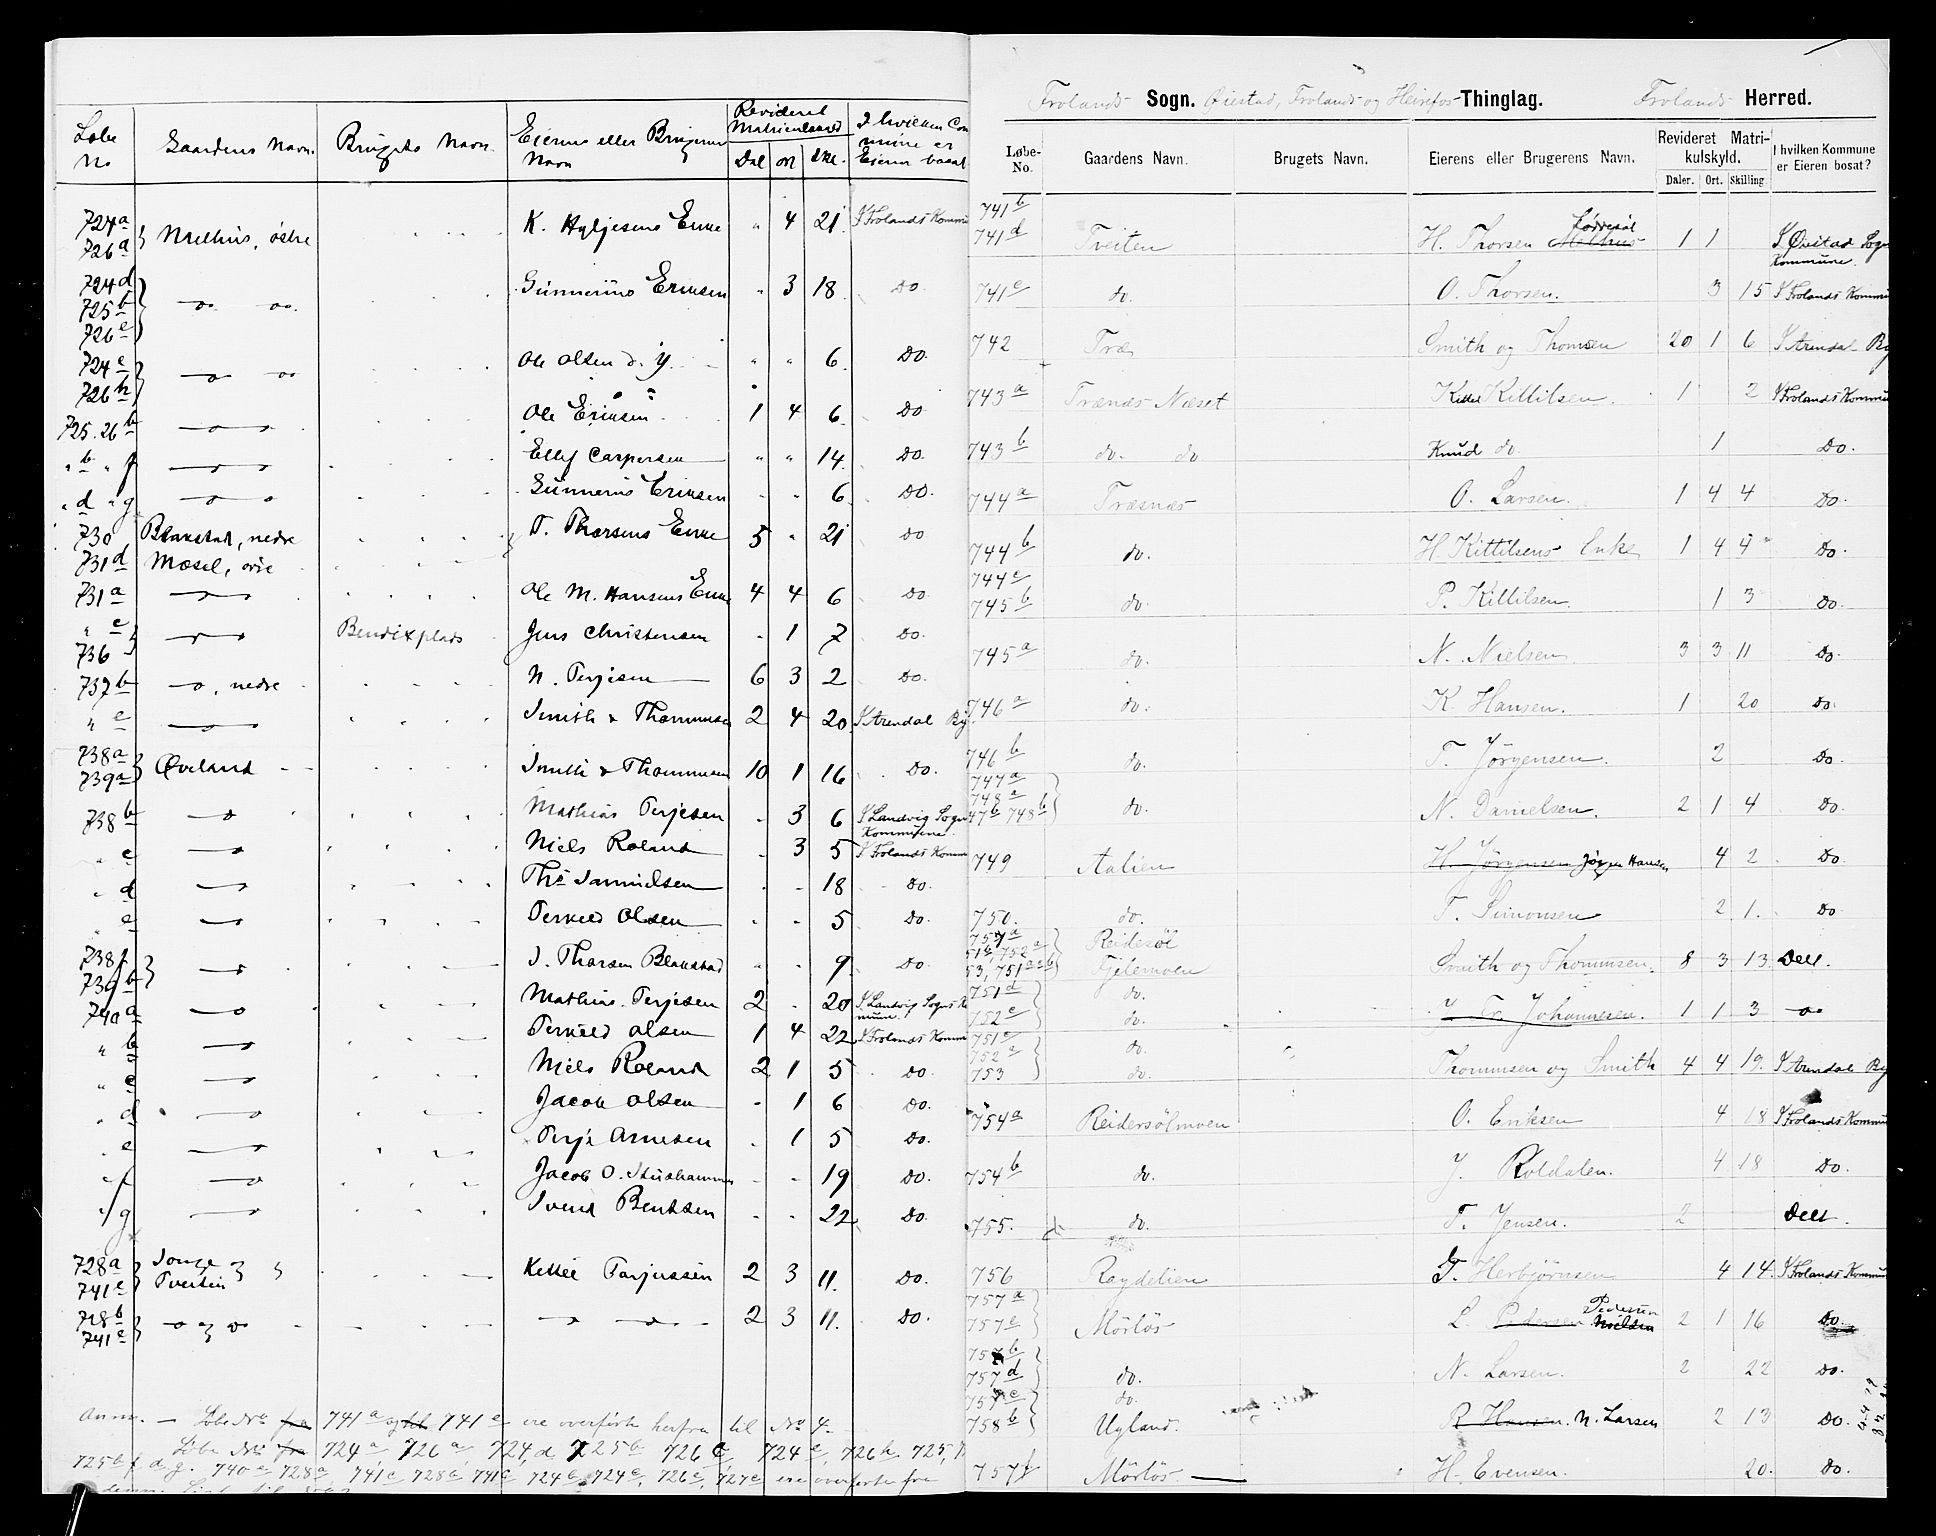 Løbe No | Gaardens Navn. | Brugets Navn | Eierens eller Brugerens Navn | Revideret Matricularskyld Dal ort Skl. | I hvilken Commune er Eieren bosat
724a 726a } Mælhus, østre | K. Asljesens Enke | " 4 21 | I Frolands Kommu
724d 725b 726e } do do. | Gunnerius Eriksen | " 3 18. | Do
724e 726h } do do | Ole Olsen d. y. | " " 6 | Do.
725.26b do | Ole Eriksen | 1 4 6 | Do
" b " f do | Ellef Caspersen | " " 14 | Do.
" d " g do | Gunnerius Eriksen | - " 6 | Do.
730 Blakstad, nedre
731d Mæsel, øvre } T. Thorsens Enke | 5 " 21 | Do
731a do | Ole M. Hansens Enke | 4 4 6 | Do
" c 736 } do | Bendixplads | Jens Christensen | - 1 7 | Do.
737b do, nedre | N. Terjesen | 6 3 2 | Do.
" c do | Smith & Thommesen | 2 4 20 | I Arendal By
738a 739a } Øveland | Smith & Thommesen | 10 1 16 | Do.
738b do | Mathias Terjesen | - 3 6 | I Landvig Sogns Kommune.
" c do | Niels Roland | - 3 5 | I Frolands Komm
" d do | Ths Samuelsen | - - 18 | Do.
" e do | Terkild Olsen | - - 5 | Do.
738f 739b } do | J. Thorsen Blakstad | " - 9 | Do.
740a do | Mathias Terjesen | 2 - 20 | I Landvig Sogns Kommun.
" b do | Terkild Olsen | 1 4 22 | I Frolands Komm
" c do | Niels Roland | 2 1 5 | Do.
" d do | Jacob Olsen | - 1 6 | Do.
" e do | Terje Arnesen | - 1 5 | Do.
" f do | Jacob O. | - - 19 | Do.
" g do | Svend Bentsen | - - 22 | Do.
728a 741c } Songe og Tveiten | Kittel Tarjussen | 2 3 11. | Do.
728b 741e } do og do | do do | 2 3 11. | Do.
Anm. — Løbe No fra 741a og til 741e ere overførte herfra til No 4.
Løbe No fra 724a, 726a, 724,d 725b 726e, 724e, 726h. 725,
725b f. d. g. 740c 728a, 741c 728b, 741e 724b, 724c, 726c, 727c ere overførte fra
Frolands Sogn. Øiestad, Frolands og Heirefos Thinglag. Frolands Herred.
Løbe-No. | Gaardens Navn. | Brugets Navn. | Eierens eller Brugerens Navn. | Revideret Matrikulskyld. Daler. Ort. Skilling. | I hvilken Kommune er Eieren bosat?
741b 741d | Tveiten | H. Thorsen Mælhus Løvresøl | 1 1 | I Øiestad Sogns Kommune.
741c | do. | O. Thorsen. | 3 15 | I Frolands Kommu
742 | Træ | Smith og Thomsen | 20 1 6 | I Arendal By
743a | Trænæs Næset | Kittel Kittilsen. | 1 2 | I Frolands Kommu
743b | do. do | Knud do | 1 | Do.
744a | Træsnæs | O. Larsen. | 1 4 4 | Do.
744b | do. | H Kittilsens Enke | 1 4 4 | Do.
744c 745b | do. | P. Kittilsen. | 1 3 | Do.
745a | do. | N. Nielsen | 3 3 11 | Do.
746a | do. | K Hansen. | 1 20 | Do.
746b | do. | T. Jørgensen. | 2 | Do
747a 748a 47b 748b } do. | N. Danielsen. | 2 1 4 | Do.
749 | Aalien | H. Jørgensen Jørgen Hansen | 4 2 | Do.
750. | do. | T. Simonsen | 2 1. | Do
757a 51b, 752a 53, 751a } Reidesøl Fjelemoen | Smith og Thommsen. | 8 3 13. | Dell.
751d 752c } do. do. | Johannesen. | 1 1 3 | do
751c 752e 753 } do. do. | Thommsen og Smith | 4 4 19. | I Arendal By
754a | Reidersølmoen | O. Eriksen | 4 18 | I Frolands Kommu
754b | do. | J. Roldalen. | 4 18 | Do.
755. | do. | T. Jensen. | 2 | Dell.
756 | Raydelien | G. Herbjørnsen | 4 14. | I Frolands Kommu
757a 757e } Mörløs | L. Pedersen Nielsen Pedersen | 2 1 16 | Do.
757b 757d } do. | N. Larsen. | 2 22 | Do.
757c 758b } do. Ugland. | R Hansen. N. Larsen | 2 13 | Do.
757f | Mörløs. | H. Evensen. | 20. | Do.